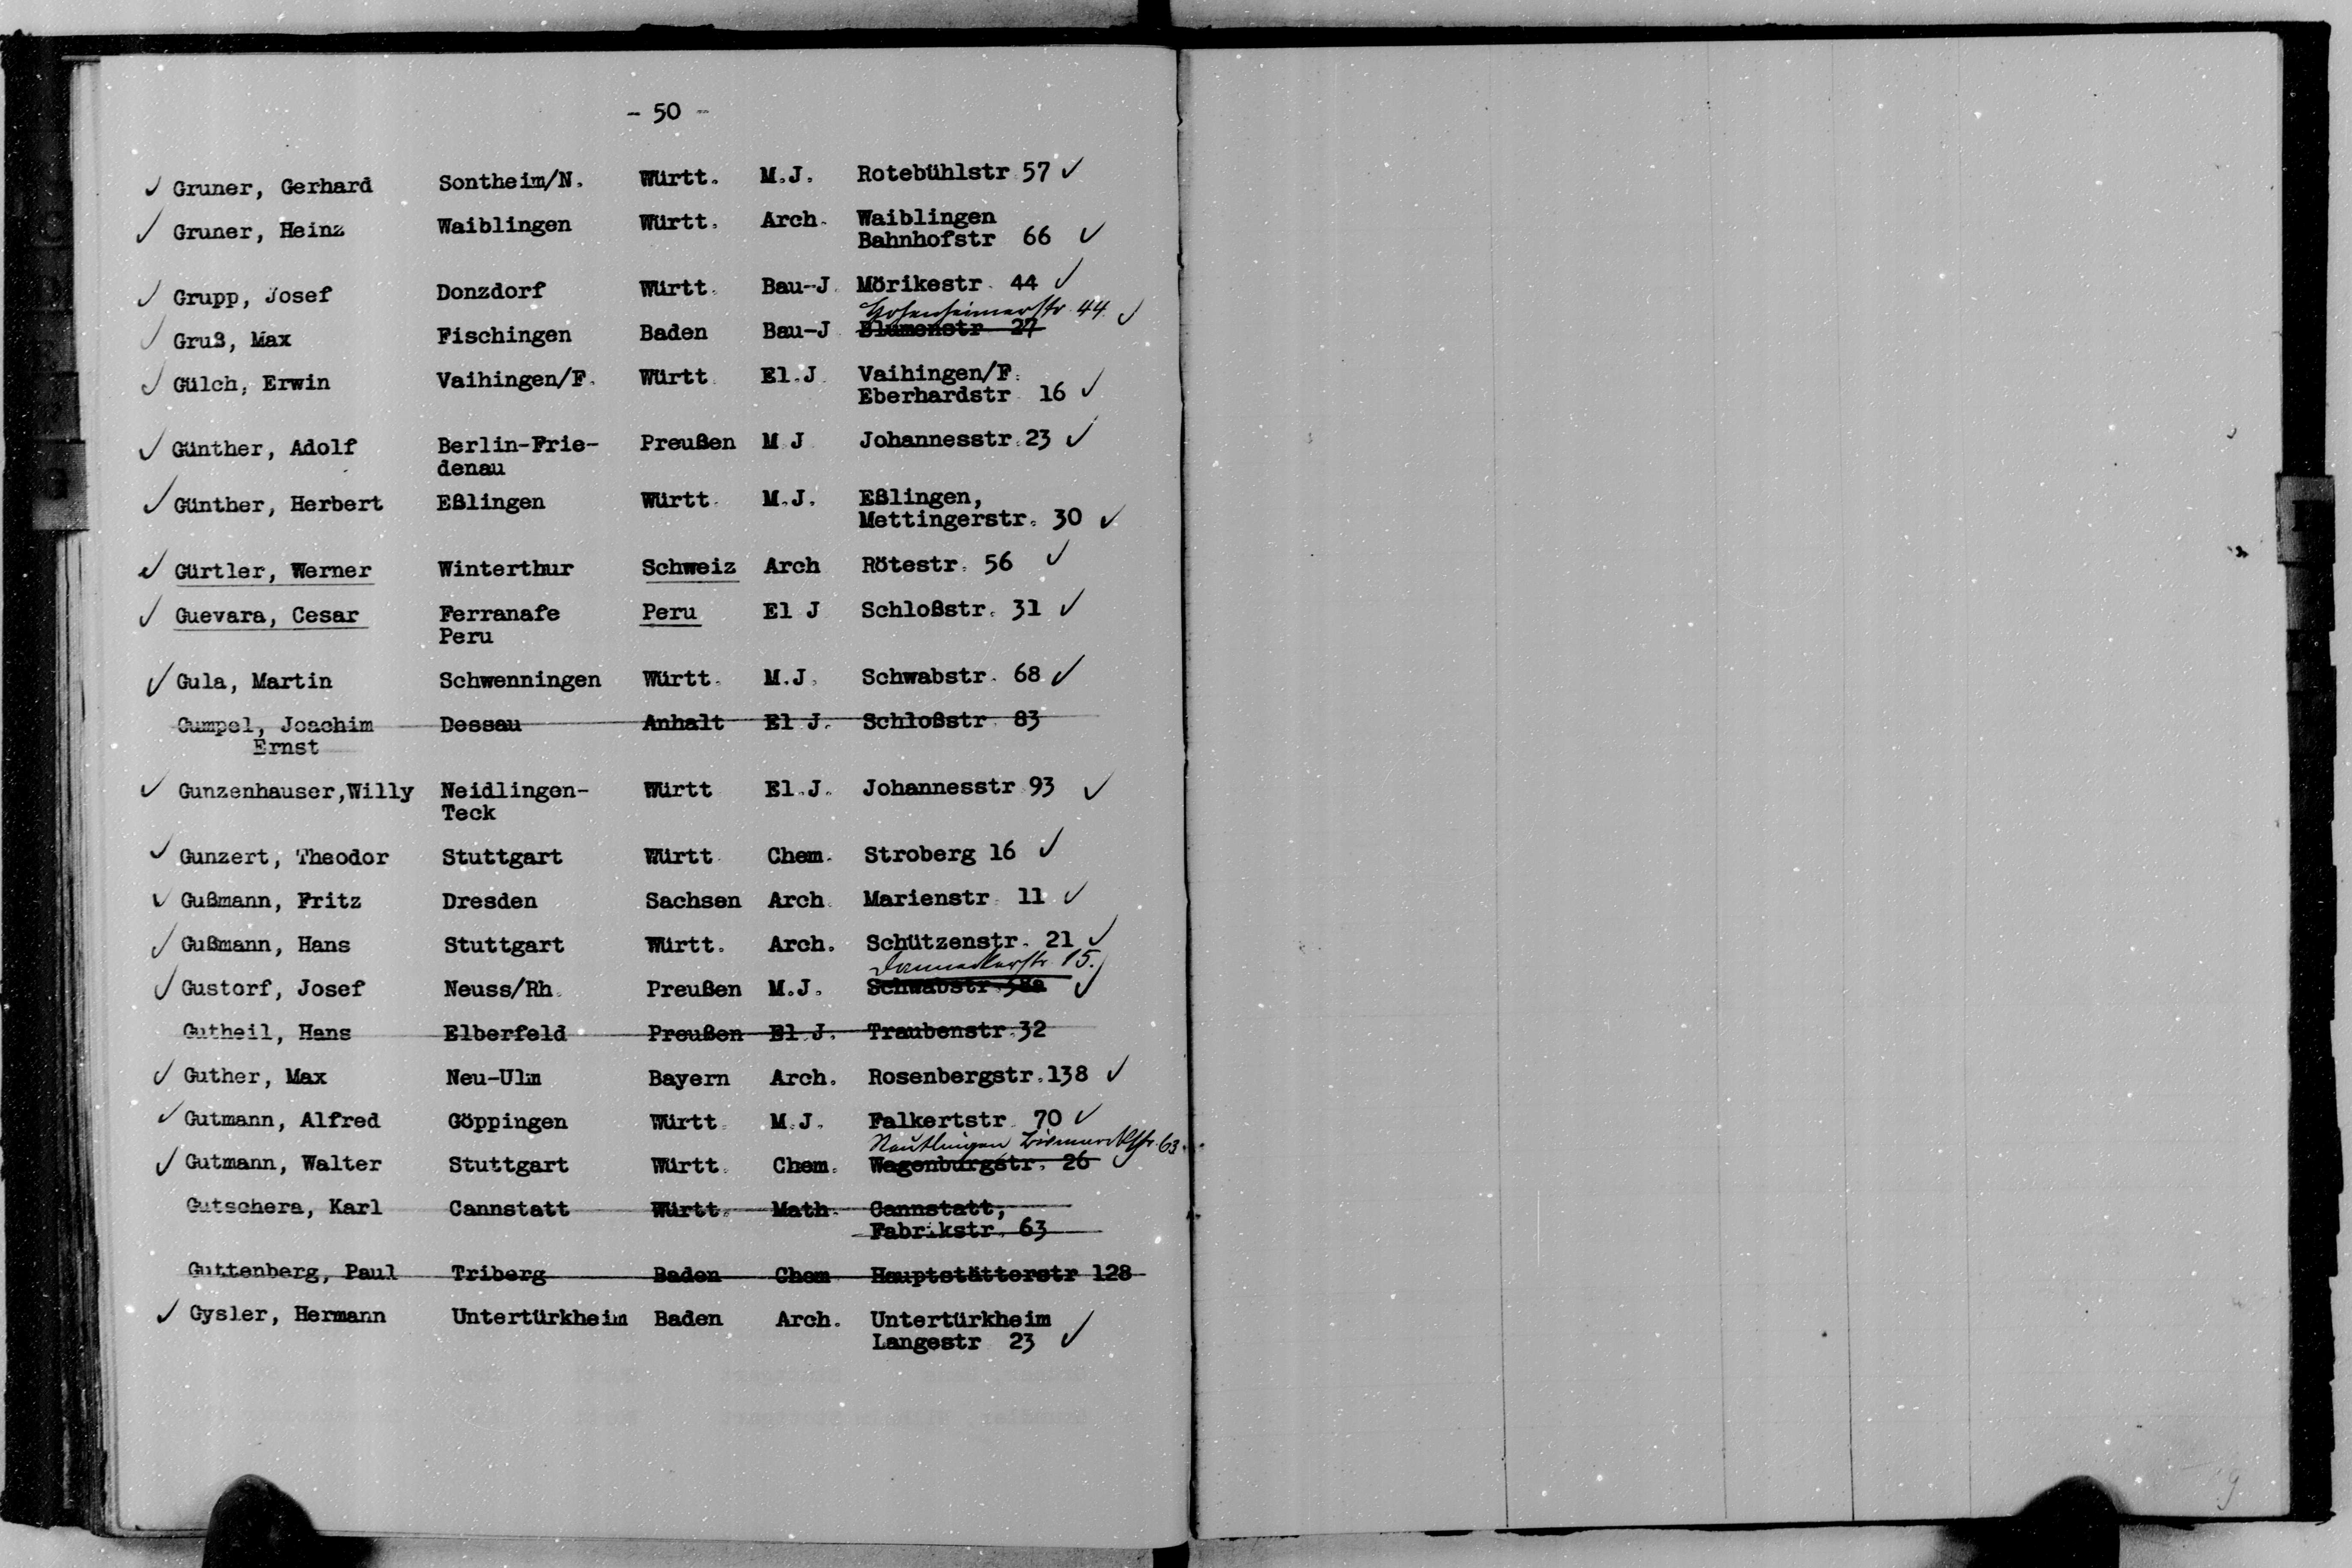 - 50 -
✓ Gruner, Gerhard Sontheim/N. Württ. M.J. Rotebühlstr 57 ✓
✓ Gruner, Heinz Waiblingen Württ. Arch. Waiblingen
Bahnhofstr 66 ✓
✓ Grupp, Josef Donzdorf Württ. Bau-J. Mörikestr. 44 ✓
Hohenheimerstr. 44. ✓
✓ Gruß, Max Fischingen Baden Bau-J Blumenstr 27
✓ Gülch, Erwin Vaihingen/F. Württ. El.J. Vaihingen/F.
Eberhardstr. 16 ✓
✓ Günther, Adolf Berlin-Frie- Preußen M J Johannesstr. 23 ✓
denau
✓ Günther, Herbert Eßlingen Württ. M.J. Eßlingen,
Mettingerstr. 30 ✓
✓ Gürtler, Werner Winterthur Schweiz Arch Rötestr. 56 ✓
✓ Guevara, Cesar Ferranafe Peru El J Schloßstr. 31 ✓
Peru
✓ Gula, Martin Schwenningen Württ. M.J. Schwabstr. 68 ✓
Gumpel, Joachim Dessau Anhalt El J. Schloßstr. 83
Ernst
✓ Gunzenhauser,Willy Neidlingen- Württ El.J. Johannesstr. 93 ✓
Teck
✓ Gunzert, Theodor Stuttgart Württ. Chem. Stroberg 16 ✓
✓ Gußmann, Fritz Dresden Sachsen Arch. Marienstr. 11 ✓
✓ Gußmann, Hans Stuttgart Württ. Arch. Schützenstr. 21 ✓
Danneckerstr. 15.
✓ Gustorf, Josef Neuss/Rh. Preußen M.J. Schwabstr. ✓
Gutheil, Hans Elberfeld Preußen El.J. Traubenstr. 32
✓ Guther, Max Neu-Ulm Bayern Arch. Rosenbergstr. 138 ✓
✓ Gutmann, Alfred Göppingen Württ. M.J. Falkertstr. 70 ✓
Bismarckstr. 63.
✓ Gutmann, Walter Stuttgart Württ. Chem. Wagenburgstr. 26
Gutschera, Karl Cannstatt Württ. Math. Cannstatt,
Fabrikstr. 63
Guttenberg, Paul Triberg Baden Chem Hauptstätterstr 128
✓ Gysler, Hermann Untertürkheim Baden Arch. Untertürkheim
Langestr 23 ✓